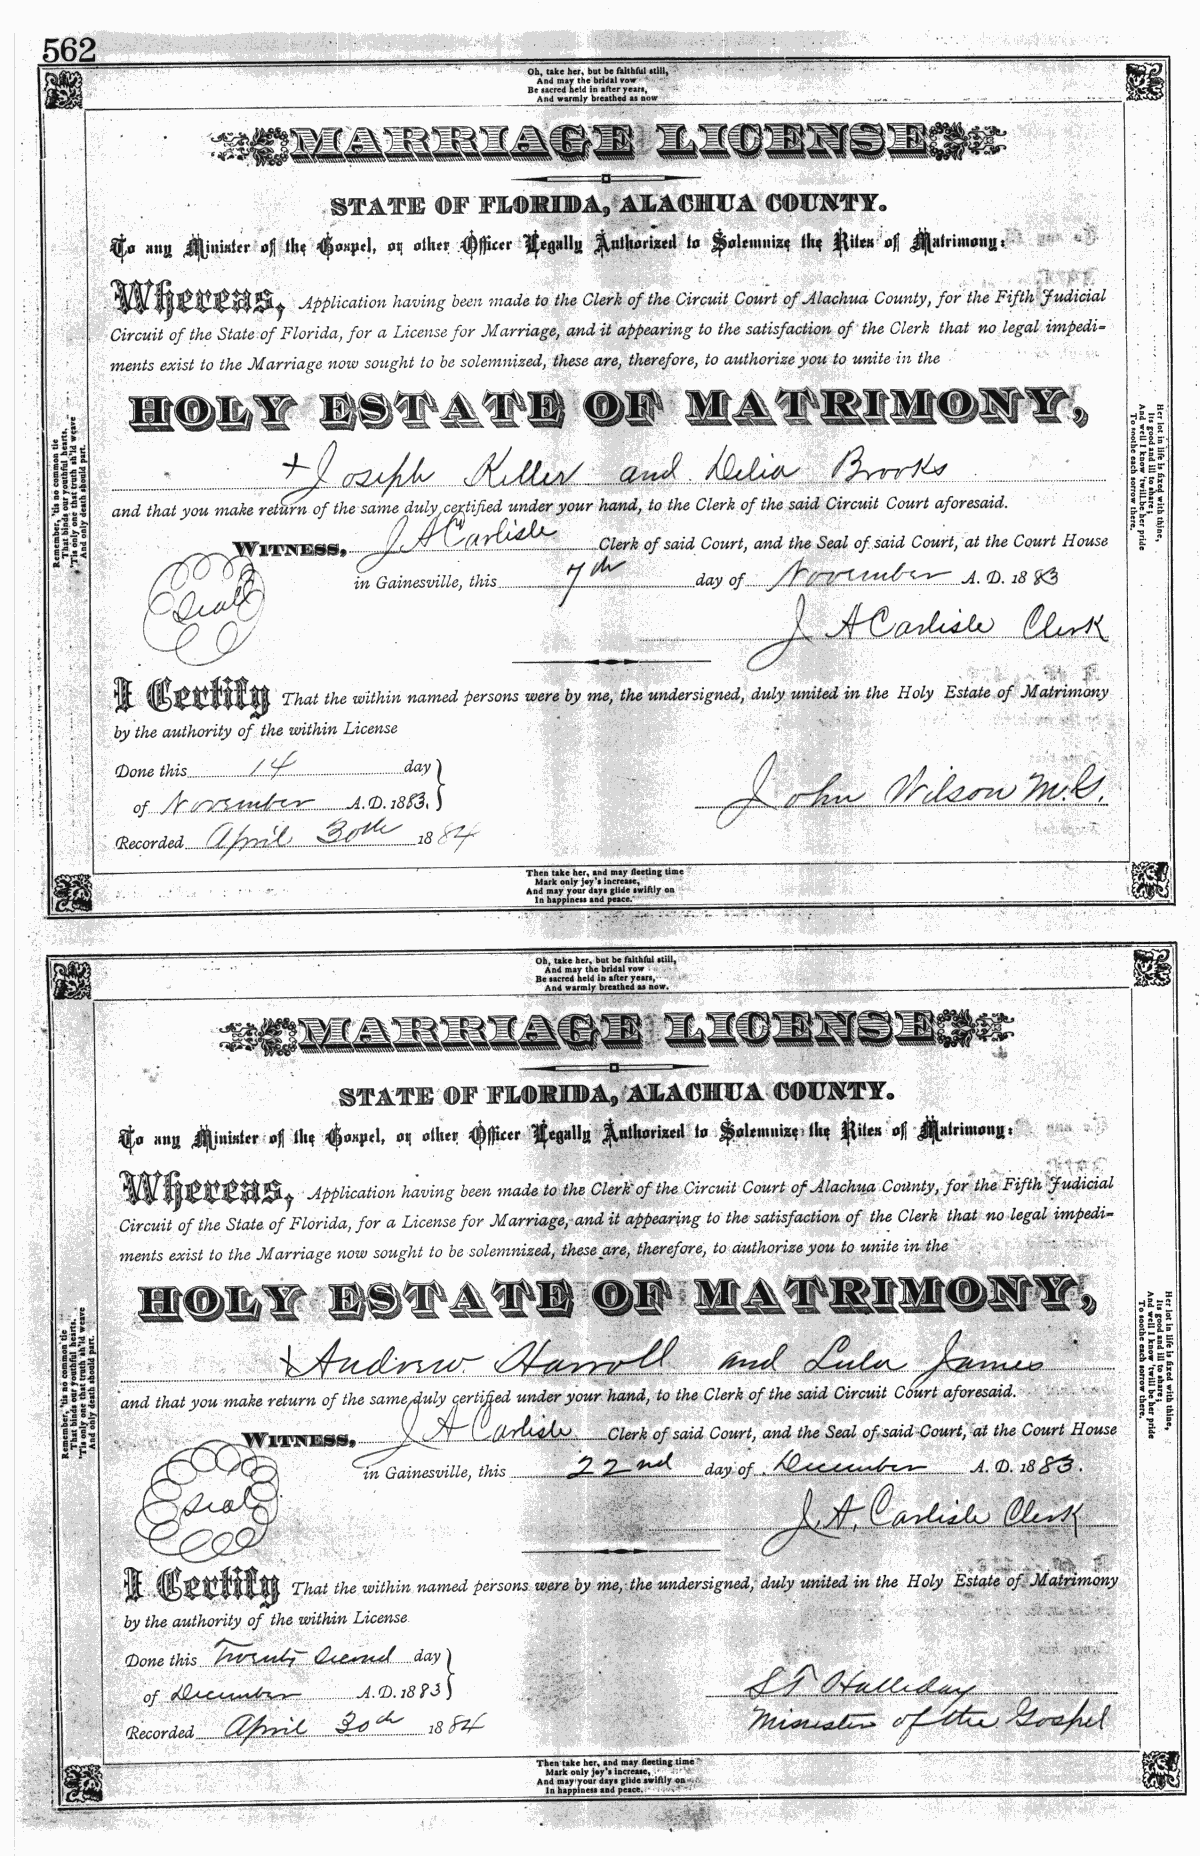 562
Oh, take her, but be faithful still,
And may the bridal vow
Be sacred held in after years,
And warmly breathed as now
MARRIAGE LICENSE
STATE OF FLORIDA, ALACHUA COUNTY.
To any Minister of the Gospel, or other Officer Legally Authorized to Solemnize the Rites of Matrimony:
Whereas, Application having been made to the Clerk of the Circuit Court of Alachua County, for the Fifth Judicial
Circuit of the State of Florida, for a License for Marriage, and it appearing to the satisfaction of the Clerk that no legal impedi=
ments exist to the Marriage now sought to be solemnized, these are, therefore, to authorize you to unite in the
HOLY ESTATE OF MATRIMONY,
+ Joseph Keller and Delia Brooks
and that you make return of the same duly certified under your hand, to the Clerk of the said Circuit Court aforesaid.
WITNESS, J A Carlisle Clerk of said Court, and the Seal of said Court, at the Court House
Seal
in Gainesville, this 7th day of November A. D. 1883
J A Carlisle Clerk
I Certify That the within named persons were by me, the undersigned, duly united in the Holy Estate of Matrimony
by the authority of the within License
Done this 14 day
of November A. D. 1883.
John Wilson M.G.
Recorded April 30th 1884
Then take her, and may fleeting time
Mark only joy's increase,
And may your days glide swiftly on
In happiness and peace.
Remember, 'tis no common tie
That binds our youthful hearts,
'Tis only one that truth sh'ld weave
And only death should part.
Her lot in life is fixed with thine,
Its good and ill to share;
And well I know 'twill be her pride
To soothe each sorrow there.
Oh, take her, but be faithful still,
And may the bridal vow
Be sacred held in after years,
And warmly breathed as now.
MARRIAGE LICENSE
STATE OF FLORIDA, ALACHUA COUNTY.
To any Minister of the Gospel, or other Officer Legally Authorized to Solemnize the Rites of Matrimony:
Whereas, Application having been made to the Clerk of the Circuit Court of Alachua County, for the Fifth Judicial
Circuit of the State of Florida, for a License for Marriage, and it appearing to the satisfaction of the Clerk that no legal impedi=
ments exist to the Marriage now sought to be solemnized, these are, therefore, to authorize you to unite in the
HOLY ESTATE OF MATRIMONY,
+ Andrew Harroll and Lula James
and that you make return of the same duly certified under your hand, to the Clerk of the said Circuit Court aforesaid.
WITNESS, J A Carlisle Clerk of said Court, and the Seal of said Court, at the Court House
Seal
in Gainesville, this 22nd day of December A. D. 1883.
J. A. Carlisle Clerk
I Certify That the within named persons were by me, the undersigned, duly united in the Holy Estate of Matrimony
by the authority of the within License
Done this Twenty Second day
of December A. D. 1883
S T Halliday
Minister of the Gospel
Recorded April 30th 1884
Then take her, and may fleeting time
Mark only joy's increase,
And may your days glide swiftly on
In happiness and peace.
Remember, 'tis no common tie
That binds our youthful hearts,
'Tis only one that truth sh'ld weave
And only death should part.
Her lot in life is fixed with thine,
Its good and ill to share;
And well I know 'twill be her pride
To soothe each sorrow there.